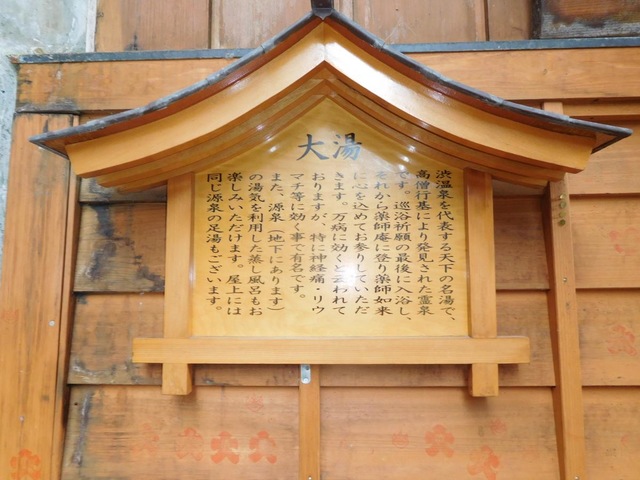 大湯
渋温泉を代表する天下の名湯で、
高僧行基により発見された霊泉
です。巡浴祈願の最後に入浴し、
それから薬師庵に登り薬師如来
に心を込めてお参りしていただ
きます。万病に効くと云われて
おりますが、特に神経痛・リウ
マチ等に効く事で有名です。
また、源泉(地下にあります)
の湯気を利用した蒸し風呂もお
楽しみいただけます。屋上には
同じ源泉の足湯もございます。